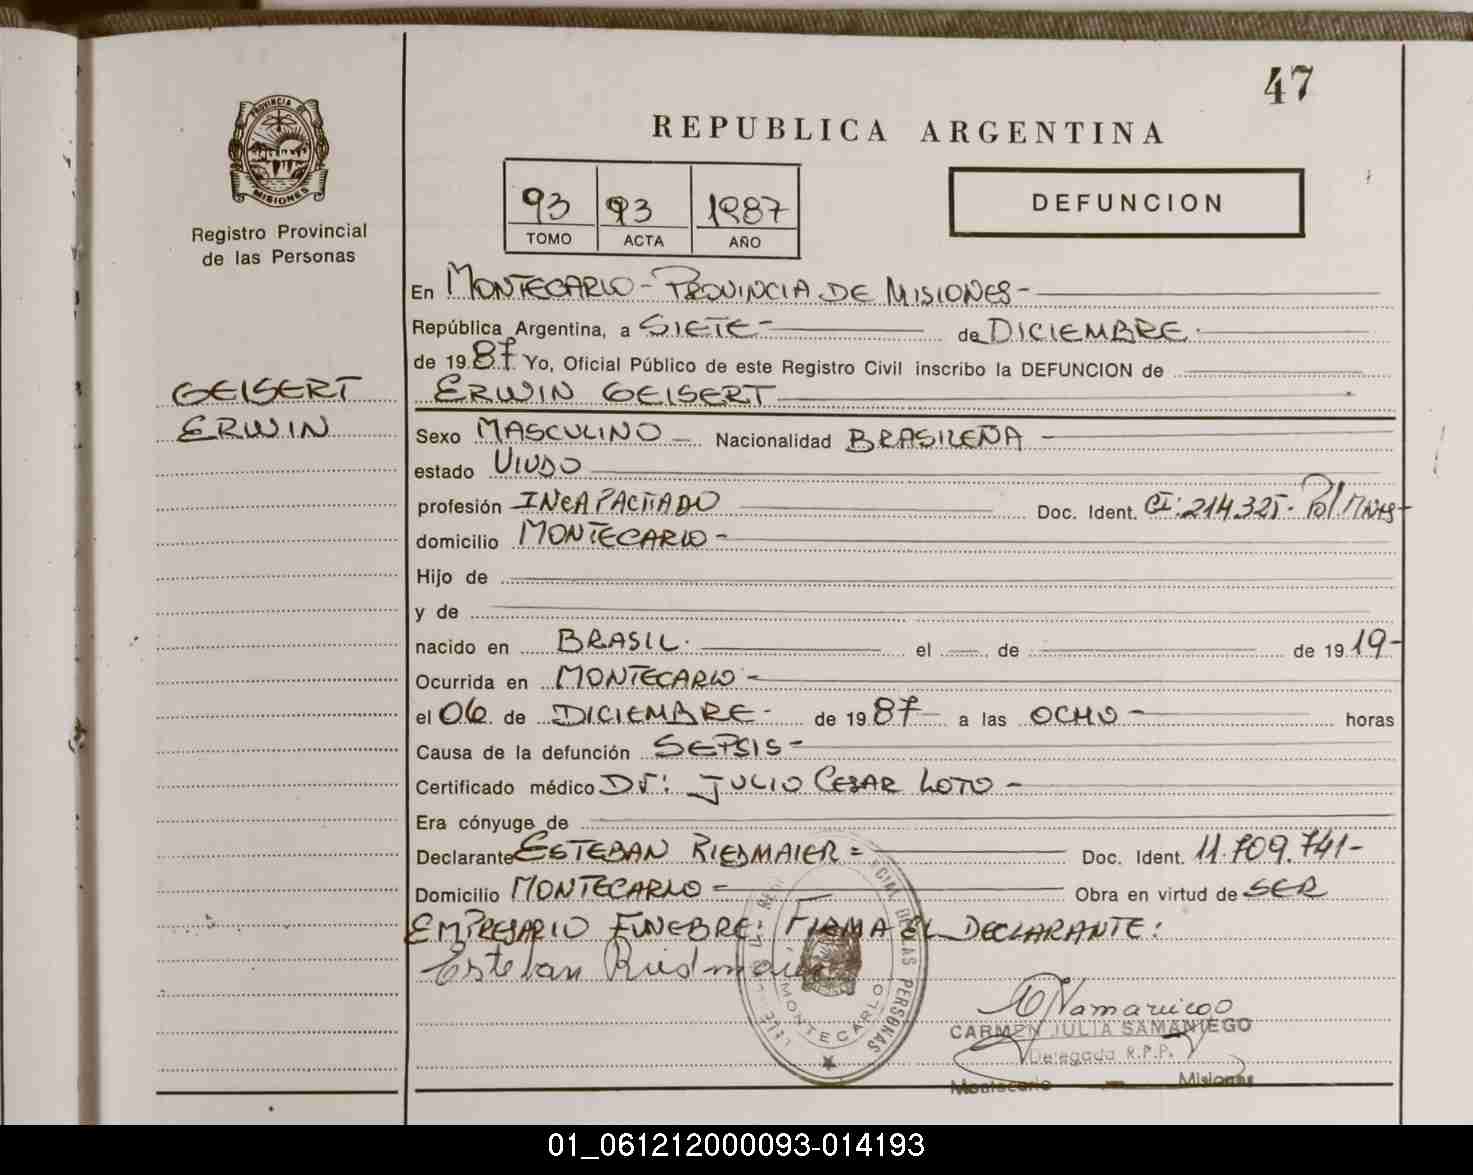 47
PROVINCIA DE
MISIONES
Registro Provincial
de las Personas
REPUBLICA ARGENTINA
93 93 1987
TOMO ACTA AÑO
DEFUNCION
En MONTECARLO - PROVINCIA DE MISIONES -
República Argentina, a SIETE - de DICIEMBRE
de 19 87 Yo, Oficial Público de este Registro Civil inscribo la DEFUNCION de
GEISERT
ERWIN
ERWIN GEISERT
Sexo MASCULINO - Nacionalidad BRASILEÑA -
estado VIUDO
profesión INCAPACITADO Doc. Ident. CI: 214.325 - Pol/Mnes -
domicilio MONTECARLO -
Hijo de
y de
nacido en BRASIL. el de de 19 19 -
Ocurrida en MONTECARLO -
el 06 de DICIEMBRE - de 19 87 a las OCHO - horas
Causa de la defunción SEPSIS -
Certificado médico Dr: JULIO CESAR LOTO -
Era cónyuge de
Declarante ESTEBAN RIEDMAIER = Doc. Ident. 11.709.741 -
Domicilio MONTECARLO - Obra en virtud de SER
EMPRESARIO FUNEBRE: FIRMA EL DECLARANTE:
Esteban Riedmaier
DE LAS PERSONAS
MONTECARLO
CARMEN JULIA SAMANIEGO
Delegada R.P.P.
Montecarlo - Misiones
01_061212000093-014193